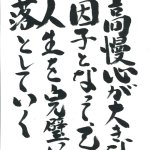 高慢心が大きな
因子となって、
人生を完璧に
落としていく